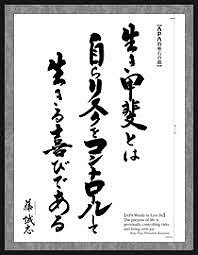 【APA的座右の銘】
生き甲斐とは
自らリスクをコントロールして
生きる喜びである
藤 誠志
【APA Words to Live By】
The purpose of life is
personally controlling risks
and living with joy.